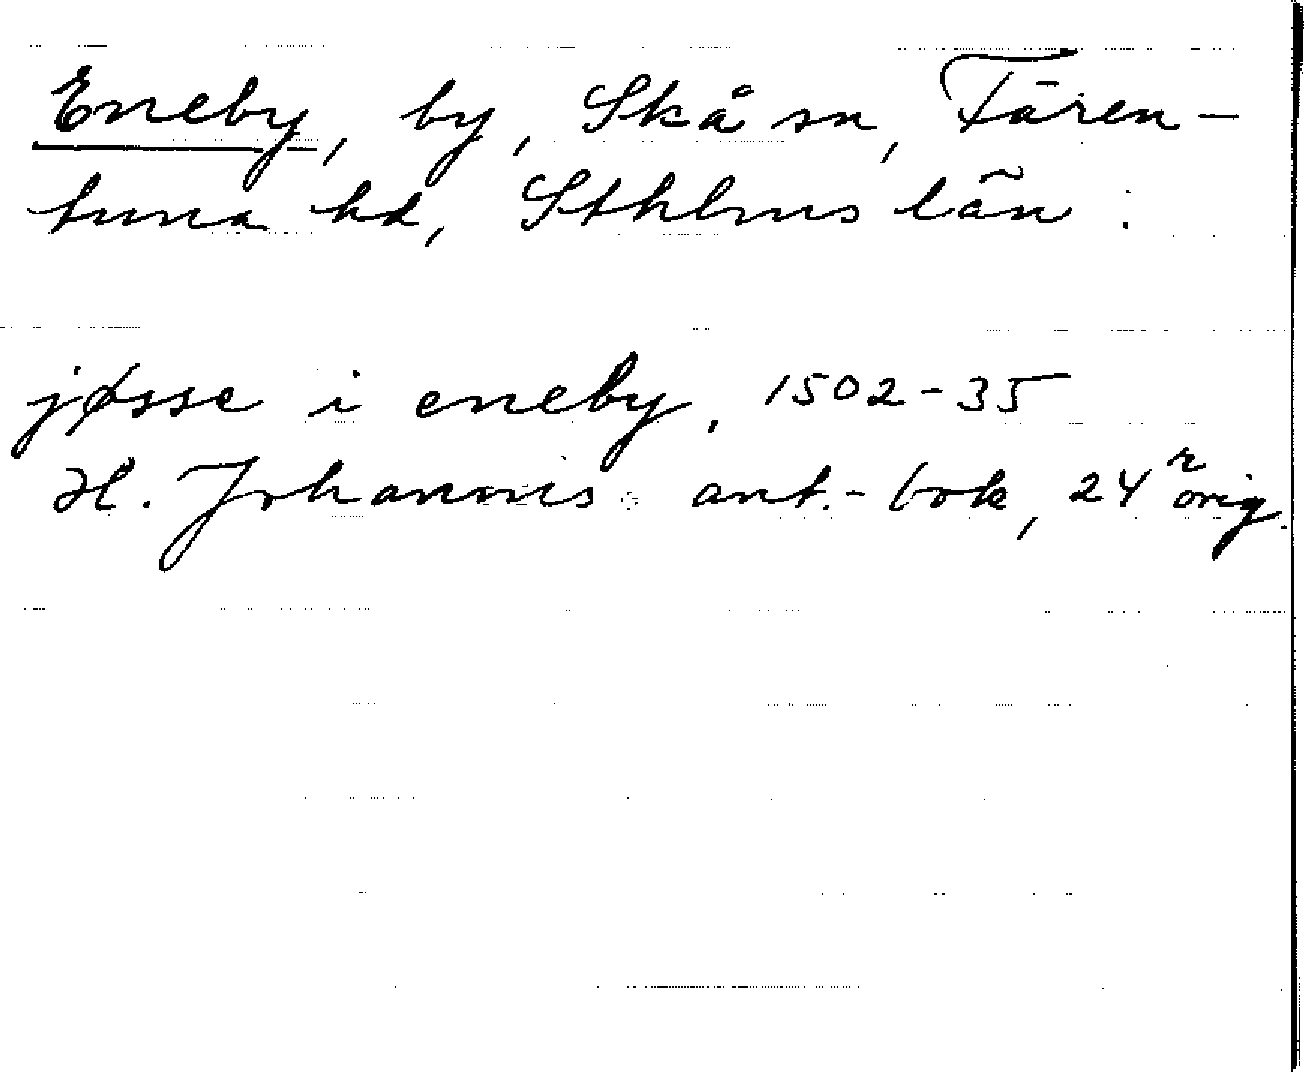 Eneby, by, Skå sn, Fären-
tuna hd, Sthlms län.
jøsse i eneby, 1502-35
H. Johannis ant.-bok, 24r orig.